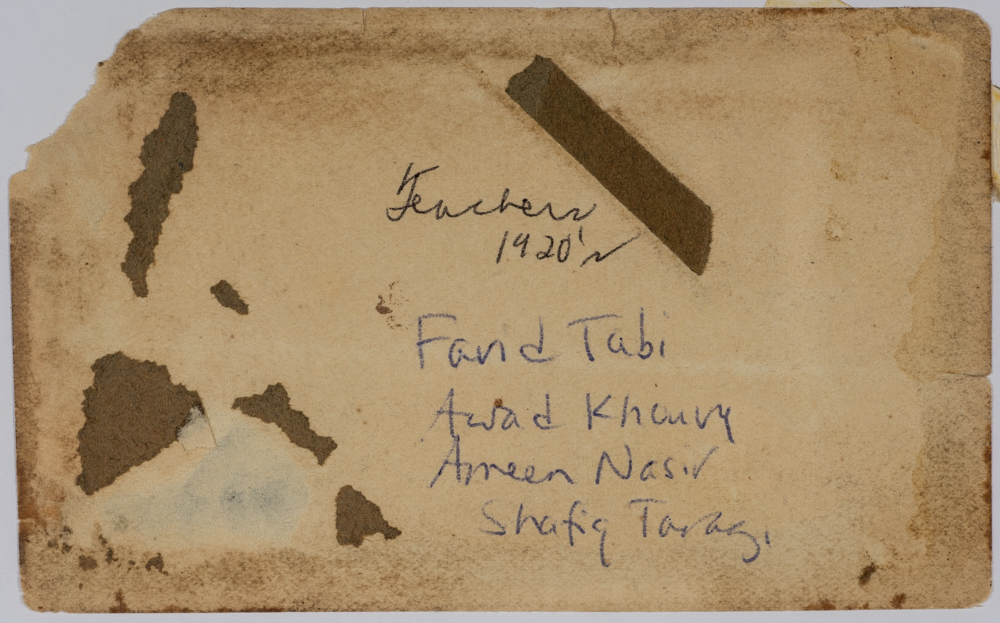 Teachers
1920's
Farid Tabi
Awad Khoury
Ameen Nasir
Shafiq Tarazi